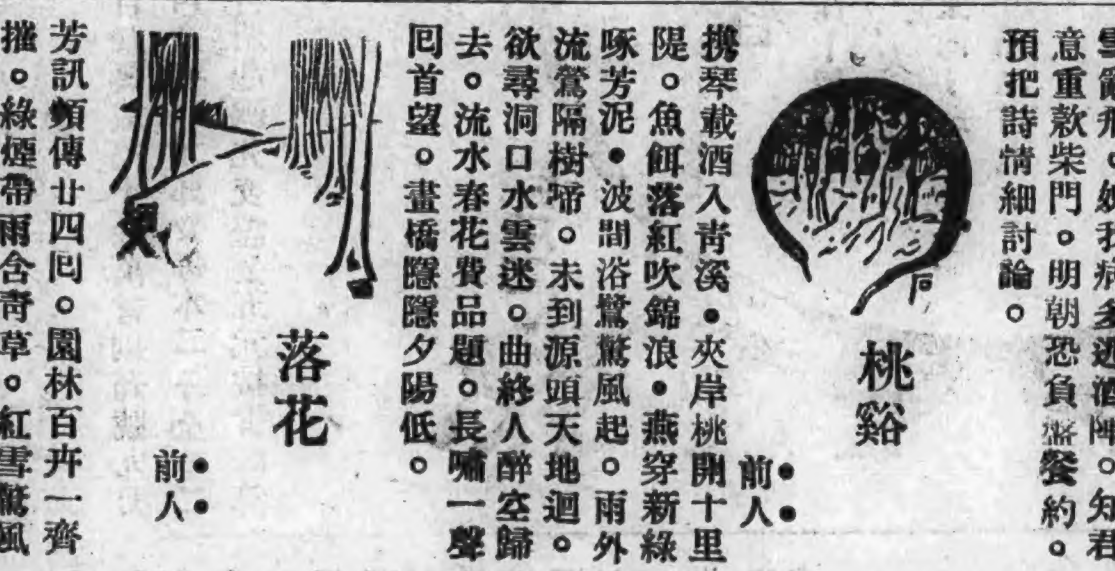 我病多酒。知君
意重款柴門。明朝恐負盤餐約。
預把詩情細討論。
桃谿
前人
攜琴載酒入青溪●夾岸桃開十里
隄。魚餌落紅吹錦浪●燕穿新綠
啄芳泥●波間浴鷺驚風起。雨外
流鶯隔樹啼。未到源頭天地迴。
欲尋洞口水雲迷。曲終人醉空歸
去。流水春花費品題。長嘯一聲
囘首望。畫橋隱隱夕陽低。
落花
前人
芳訊頻傳廿四囘。園林百卉一齊
摧。綠煙帶雨含青草。紅雪驚風